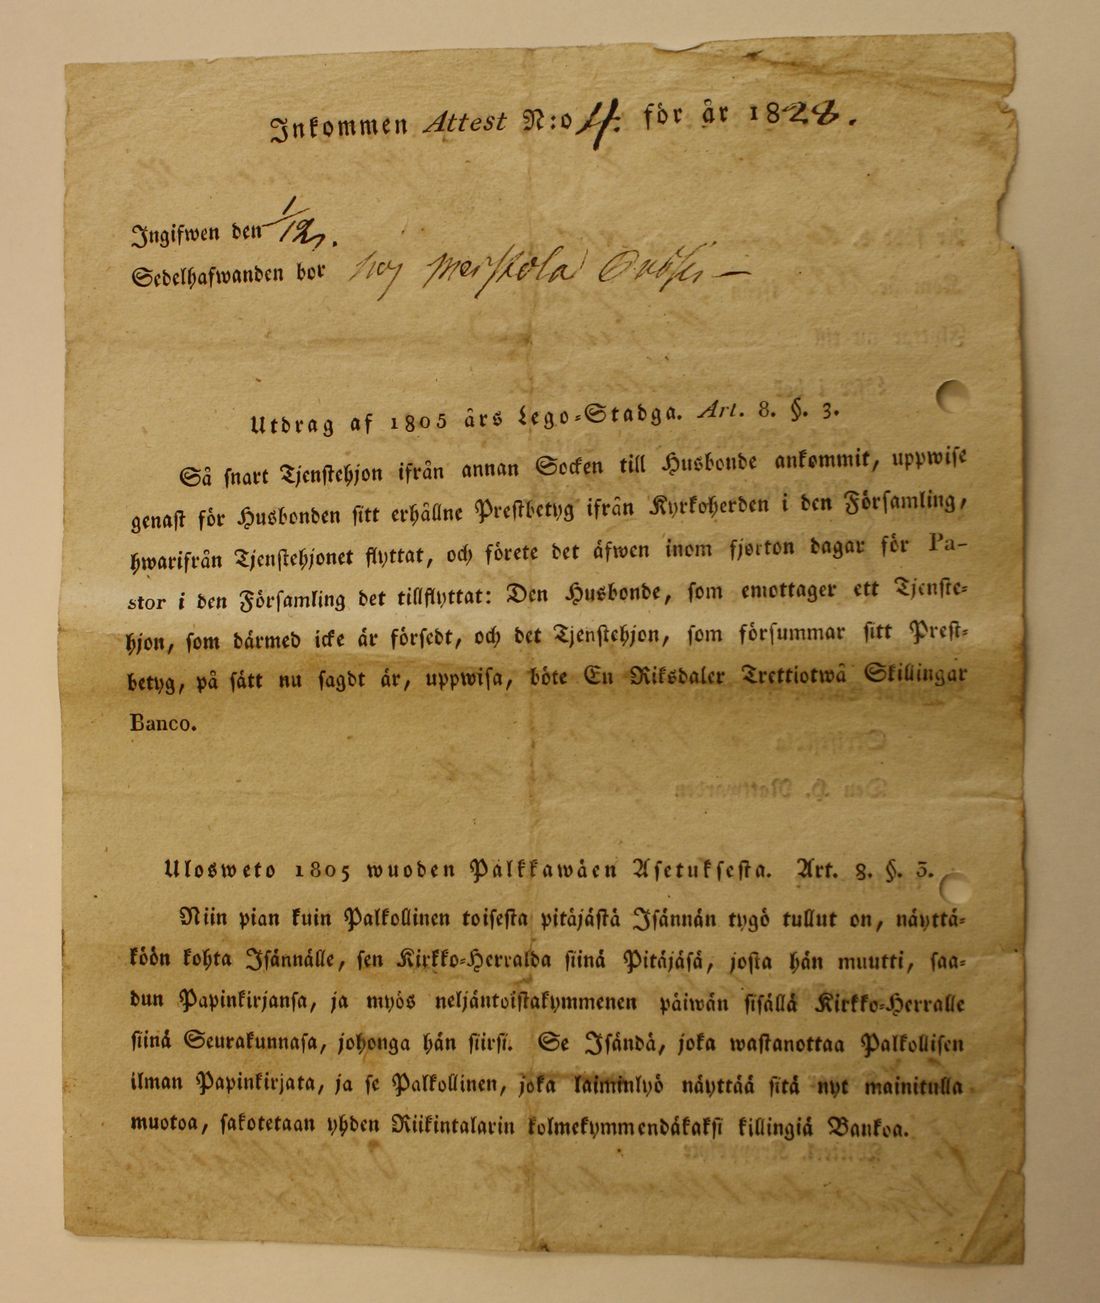 Inkommen Attest N:o 4. för år 1828.
Ingifwen den 1/12.
Sedelhafwanden bor hos
Utdrag af 1805 års Lego-Stadga. Art. 8. §. 3.
Så snart Tjenstehjon ifrån annan Socken till Husbonde ankommit, uppwise
genast för Husbonden sitt erhållne Prestbetyg ifrån Kyrkoherden i den Församling,
hwarifrån Tjenstehjonet flyttat, och förete det äfwen inom fjorton dagar för Pa-
stor i den Församling det tillflyttat: Den Husbonde, som emottager ett Tjenste-
hjon, som därmed icke är försedt, och det Tjenstehjon, som försummar sitt Prest-
betyg, på sätt nu sagdt är, uppwisa, böte En Riksdaler Trettiotwå Skillingar
Banco.
Ulosweto 1805 wuoden Palkkawäen Asetuksesta. Art. 8. §. 3.
Niin pian kuin Palkollinen toisesta pitäjästä Isännän tygö tullut on, näyttä-
köön kohta Isännälle, sen Kirkko-Herralda siinä Pitäjäsä, josta hän muutti, saa-
dun Papinkirjansa, ja myös neljäntoistakymmenen päiwän sisällä Kirkko-Herralle
siinä Seurakunnasa, johonga hän siirsi. Se Isändä, joka wastanottaa Palkollisen
ilman Papinkirjata, ja se Palkollinen, joka laiminlyö näyttää sitä nyt mainitulla
muotoa, sakotetaan yhden Riikintalarin kolmekymmendäkaksi killingiä Bankoa.